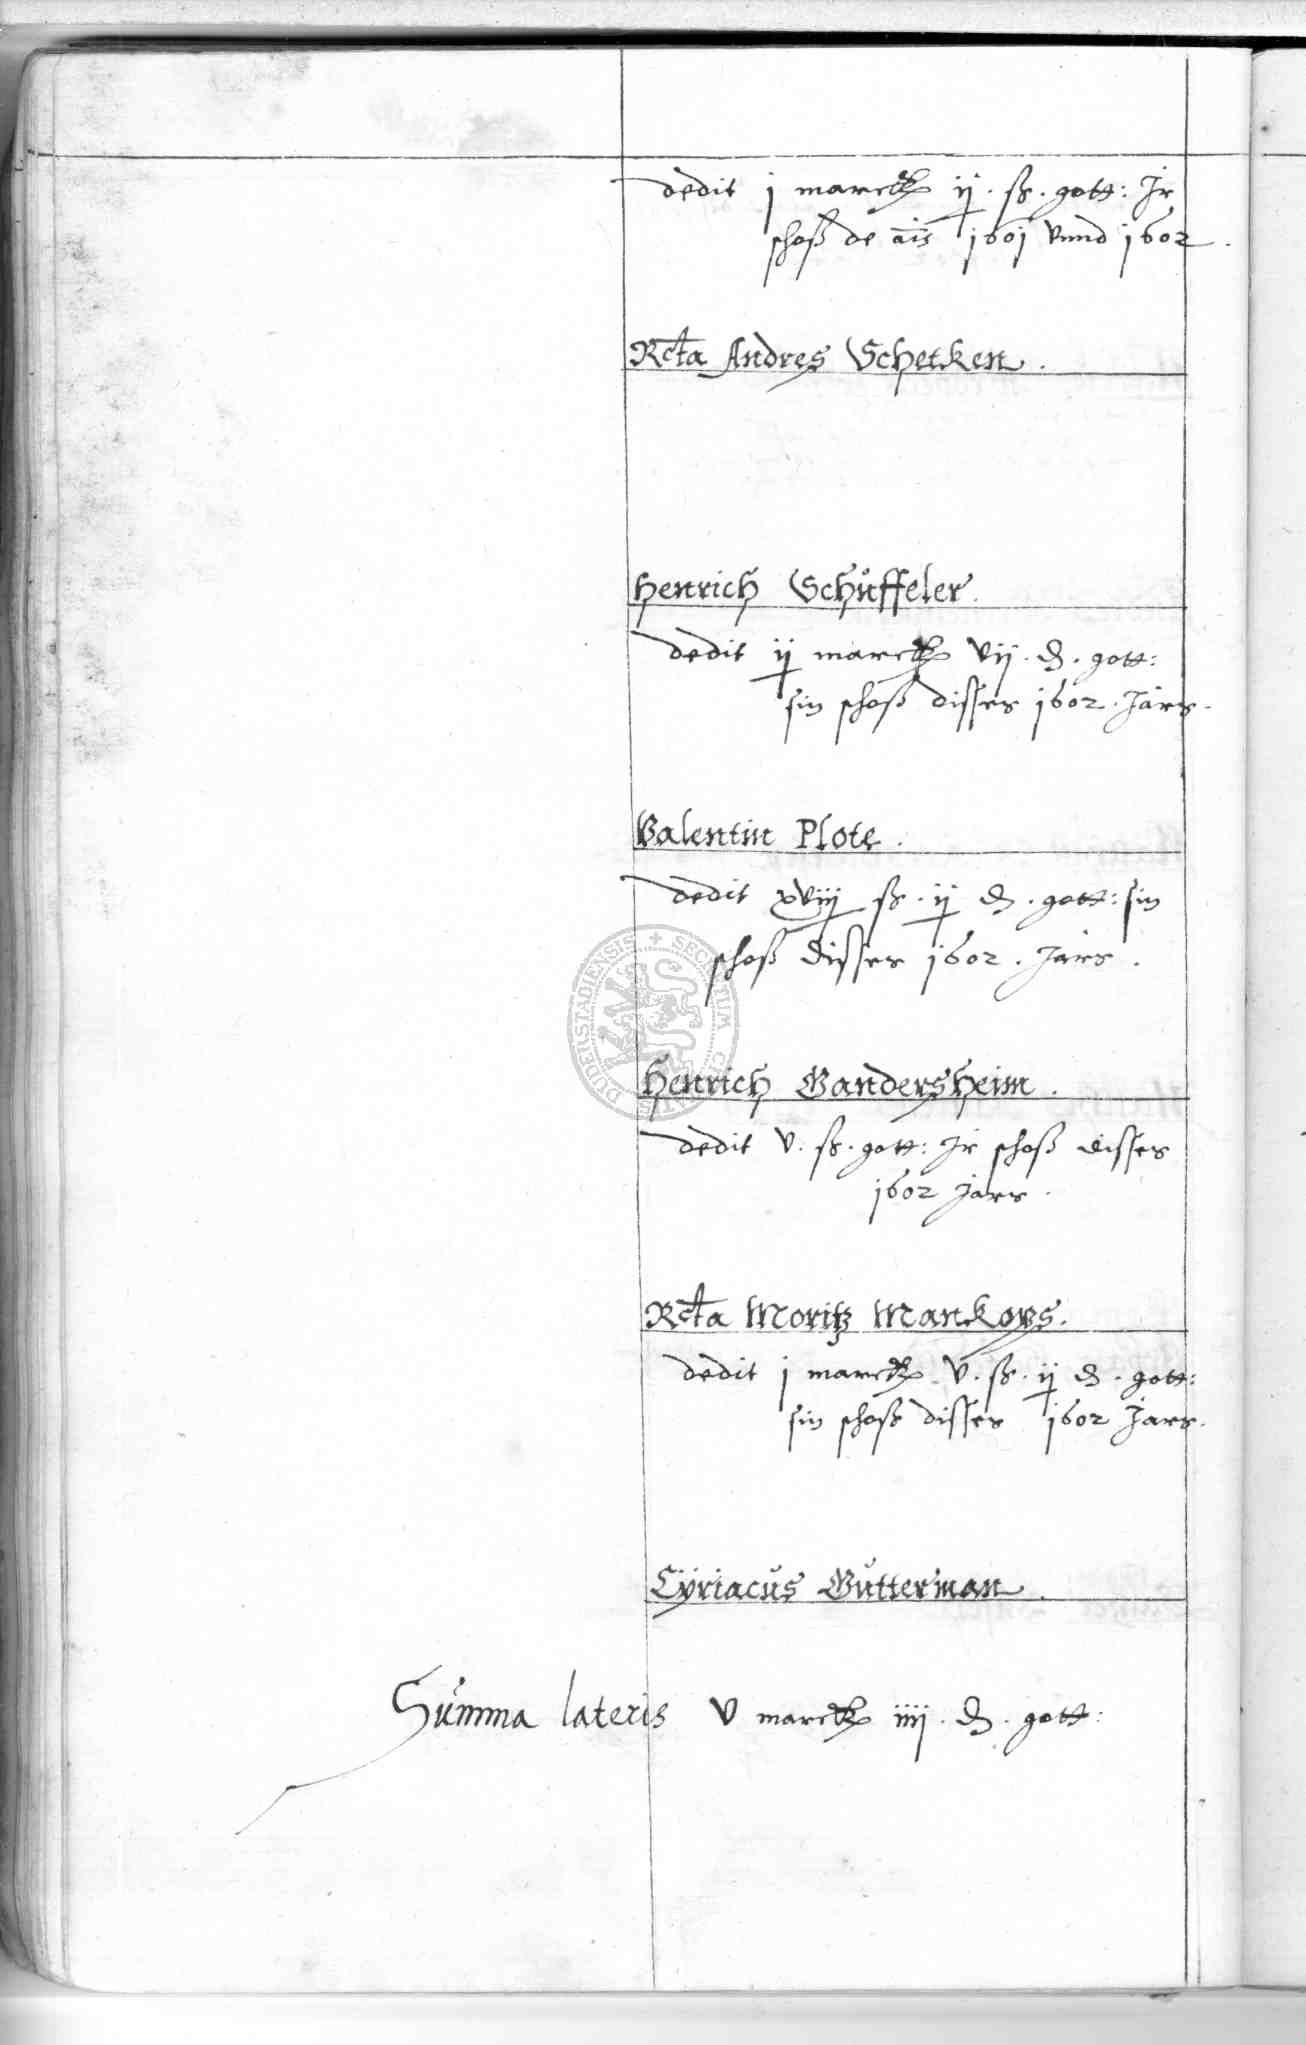 dedit j marck ij. ß. gott: Jr
schoß de ais 1601 vnnd 1602.
Rcta Andres Schetken.
Henrich Schůffeler.
dedit ij marck vij. ₰. gott:
sin schoß disses 1602. Jars.
Valentin Plote.
dedit xviij ß. ij ₰. gott: sin
schoß disses 1602. Jars.
Henrich Gandersheim.
dedit v. ß. gott: Jr schoß disses
1602 Jars.
Rcta Moritz Mankops.
dedit j marck v. ß. ij ₰. gott:
sin schoß disses 1602 Jars.
Cÿriacus Gutterman.
Summa lateris v marck iiij. ₰. gott:
DUDERSTADIENSIS + SECRETUM